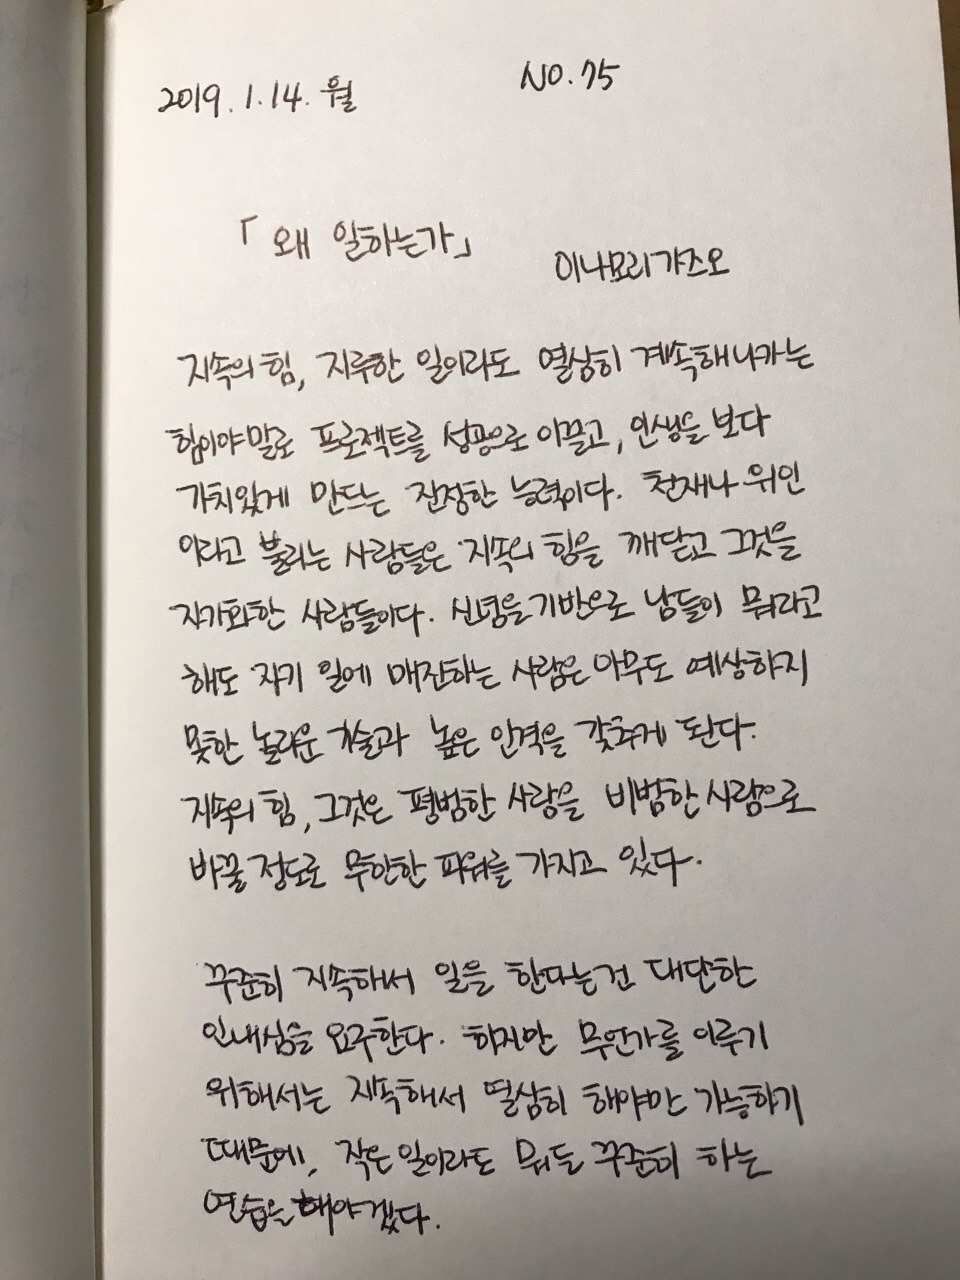 2019.1.14.월
NO.75
「왜 일하는가」
이나모리가즈오
지속의 힘, 지루한 일이라도 열심히 계속해나가는
힘이야말로 프로젝트를 성공으로 이끌고, 인생을 보다
가치있게 만드는 진정한 능력이다. 천재나 위인
이라고 불리는 사람들은 지속의 힘을 깨닫고 그것을
자기화한 사람들이다. 신념을 기반으로 남들이 뭐라고
해도 자기 일에 매진하는 사람은 아무도 예상하지
못한 놀라운 기술과 높은 인격을 갖추게 된다.
지속의 힘, 그것은 평범한 사람을 비범한 사람으로
바꿀 정도로 무한한 파워를 가지고 있다.
꾸준히 지속해서 일을 한다는건 대단한
인내심을 요구한다. 하지만 무언가를 이루기
위해서는 지속해서 열심히 해야만 가능하기
때문에, 작은 일이라도 뭐든 꾸준히 하는
연습을 해야겠다.